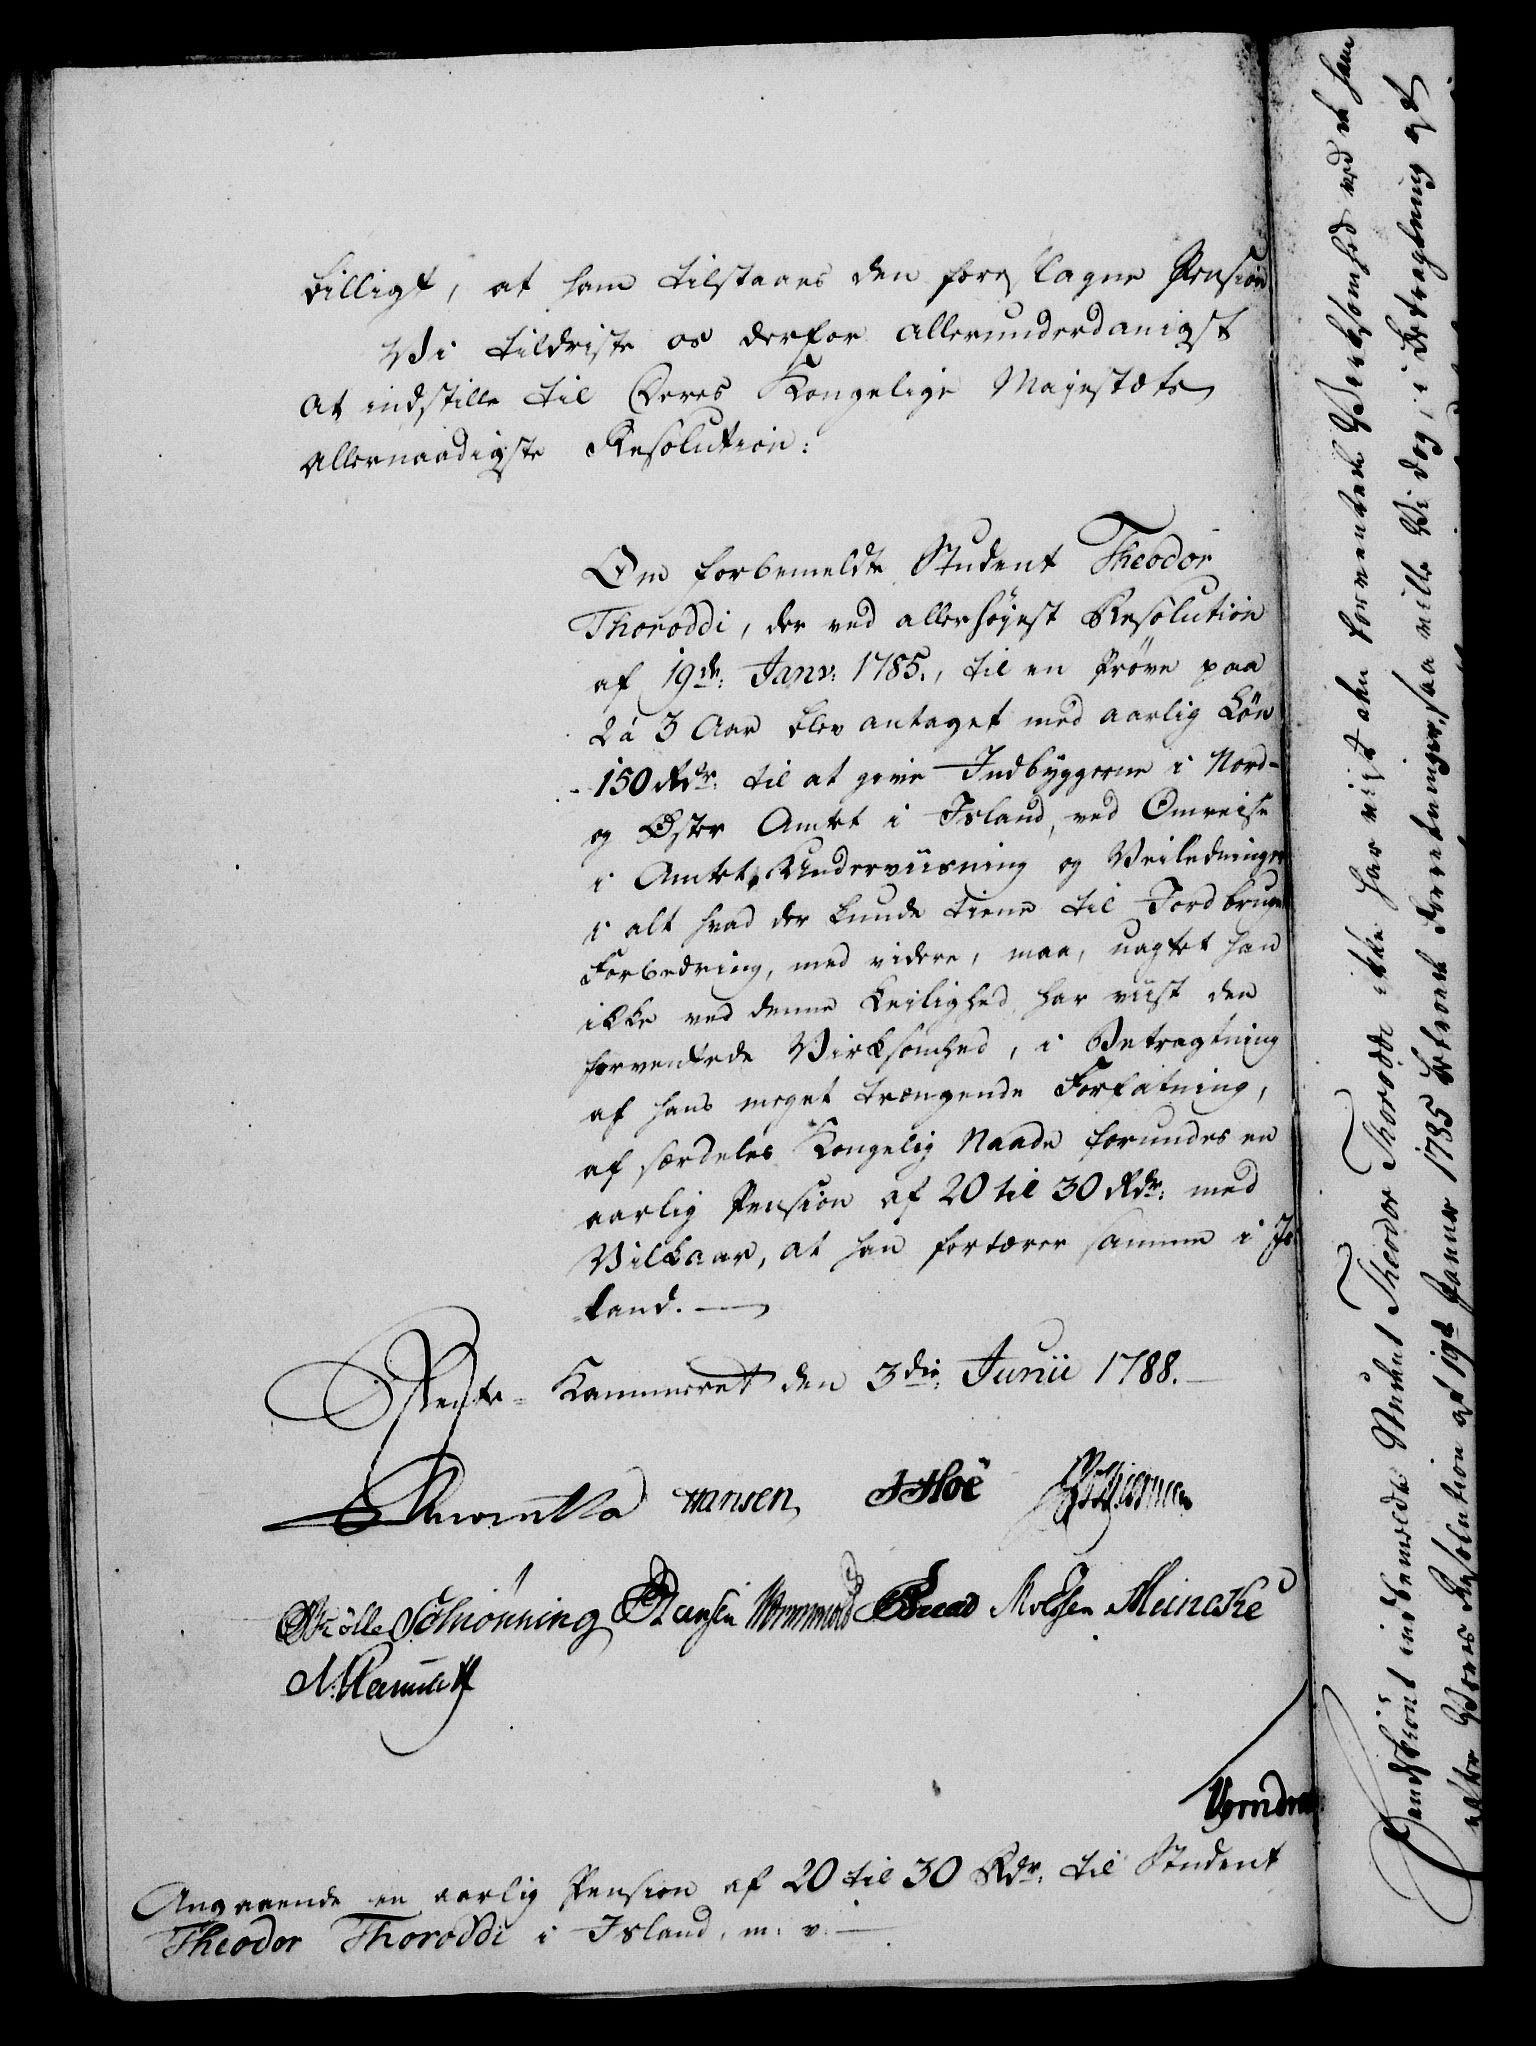 billigt, at ham tilstaaes den foreslagne Pension
Vi tildriste os derfor allerunderdanigst
at indstille til Deres Kongelige Majestæts
allernaadigste Resolution:
Om forbemeldte Student Theodor
Thoroddi, der ved allerhøyest Resolution
af 19de Janv: 1785., til en Prøve paa
2 á 3 Aar blev antaget med aarlig Løn
150 Rdr: til at give Indbyggerne i Nord-
og Øster Amtet i Island, ved Omreise
i Amtet, Underviisning og Veiledninger
i alt hvad der kunde tiene til Jordbrugets
Forbedring, med videre, maa, uagtet han
ikke ved denne Leilighed har viist den
forventede Virksomhed, i Betragtning
af hans meget trængende Forfatning,
af særdeles Kongelig Naade forundes en
aarlig Pension af 20 til 30 Rdr: med
Vilkaar, at han fortærer samme i Is-
=land.
Rente-Kammeret den 3die Junii 1788.
Hansen
Schiønning Hansen Wormskiold Meincke
Angaaende en aarlig Pension af 20 til 30 Rdr: til Student
Theodor Thoroddi i Island, m: v:
Handskiønt indbemeldte Student Theodor Thoroddi ikke har viist den forventede Virksomhed ved de ham
efter Vores Resolution af 19de Januar 1785 betroede Forretninger, saa ville Vi dog, i Betragtning af